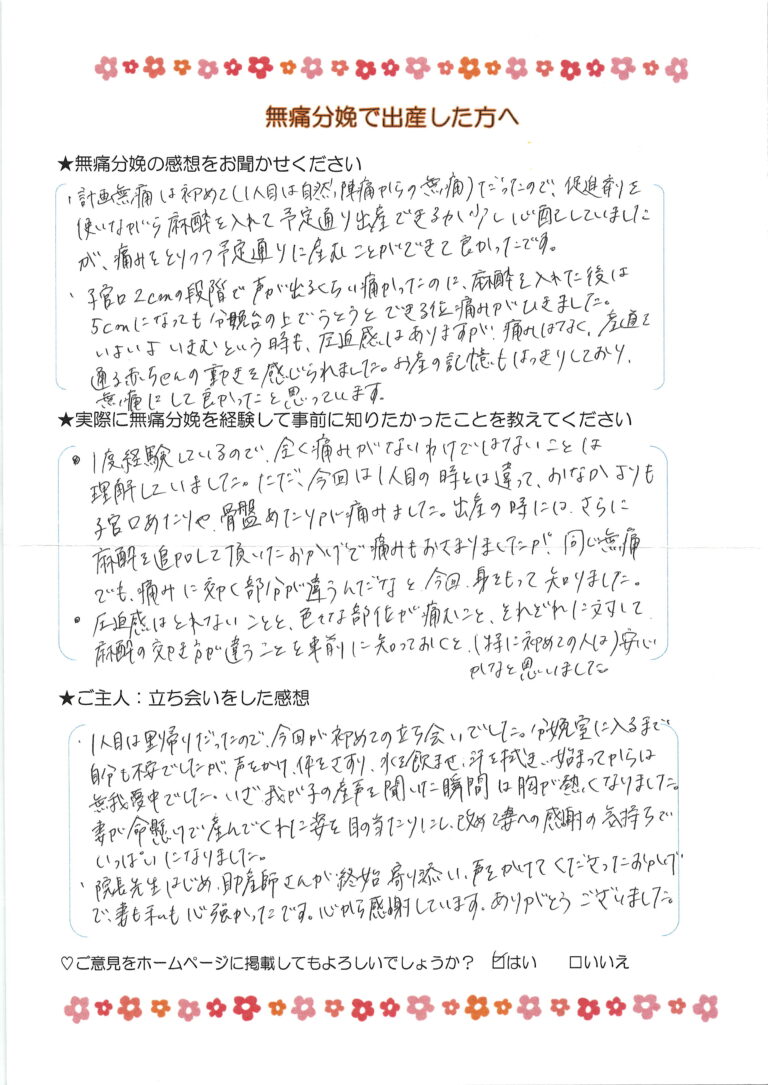 無痛分娩で出産した方へ
★無痛分娩の感想をお聞かせください
・計画無痛は初めて(1人目は自然陣痛からの無痛)だったので、促進剤を
使いながら麻酔を入れて予定通り出産できるか少し心配していました
が、痛みをとりつつ予定通りに産むことができて良かったです。
・子宮口2cmの段階で声が出るくらい痛かったのに、麻酔を入れた後は
5cmになっても分娩台の上でうとうとできる位痛みがひきました。
いよいよいきむという時も、圧迫感はありますが、痛みはなく、産道を
通る赤ちゃんの動きを感じられました。お産の記憶もはっきりしており、
無痛にして良かったと思っています。
★実際に無痛分娩を経験して事前に知りたかったことを教えてください
・1度経験しているので、全く痛みがないわけではないことは
理解していました。ただ、今回は1人目の時とは違って、おなかよりも
子宮口あたりや、骨盤あたりが痛みました。出産の時には、さらに
麻酔を追加して頂いたおかげで痛みもおさまりましたが、同じ無痛
でも、痛みに効く部分が違うんだなと今回、身をもって知りました。
・圧迫感はとれないことと、色々な部位が痛むこと、それぞれに対して
麻酔の効き方が違うことを事前に知っておくと、(特に初めての人は)安心
かなと思いました。
★ご主人:立ち会いをした感想
・1人目は里帰りだったので、今回が初めての立ち会いでした。分娩室に入るまで
自分も不安でしたが、声をかけ、体をさすり、水を飲ませ、汗を拭き、始まってからは
無我夢中でした。いざ、我が子の産声を聞いた瞬間は胸が熱くなりました。
妻が命懸けで産んでくれた姿を目の当たりにし、改めて妻への感謝の気持ちで
いっぱいになりました。
・院長先生はじめ、助産師さんが終始寄り添い、声をかけてくださったおかげ
で、妻も私も心強かったです。心から感謝しています。ありがとうございました。
♡ご意見をホームページに掲載してもよろしいでしょうか? ☑はい □いいえ